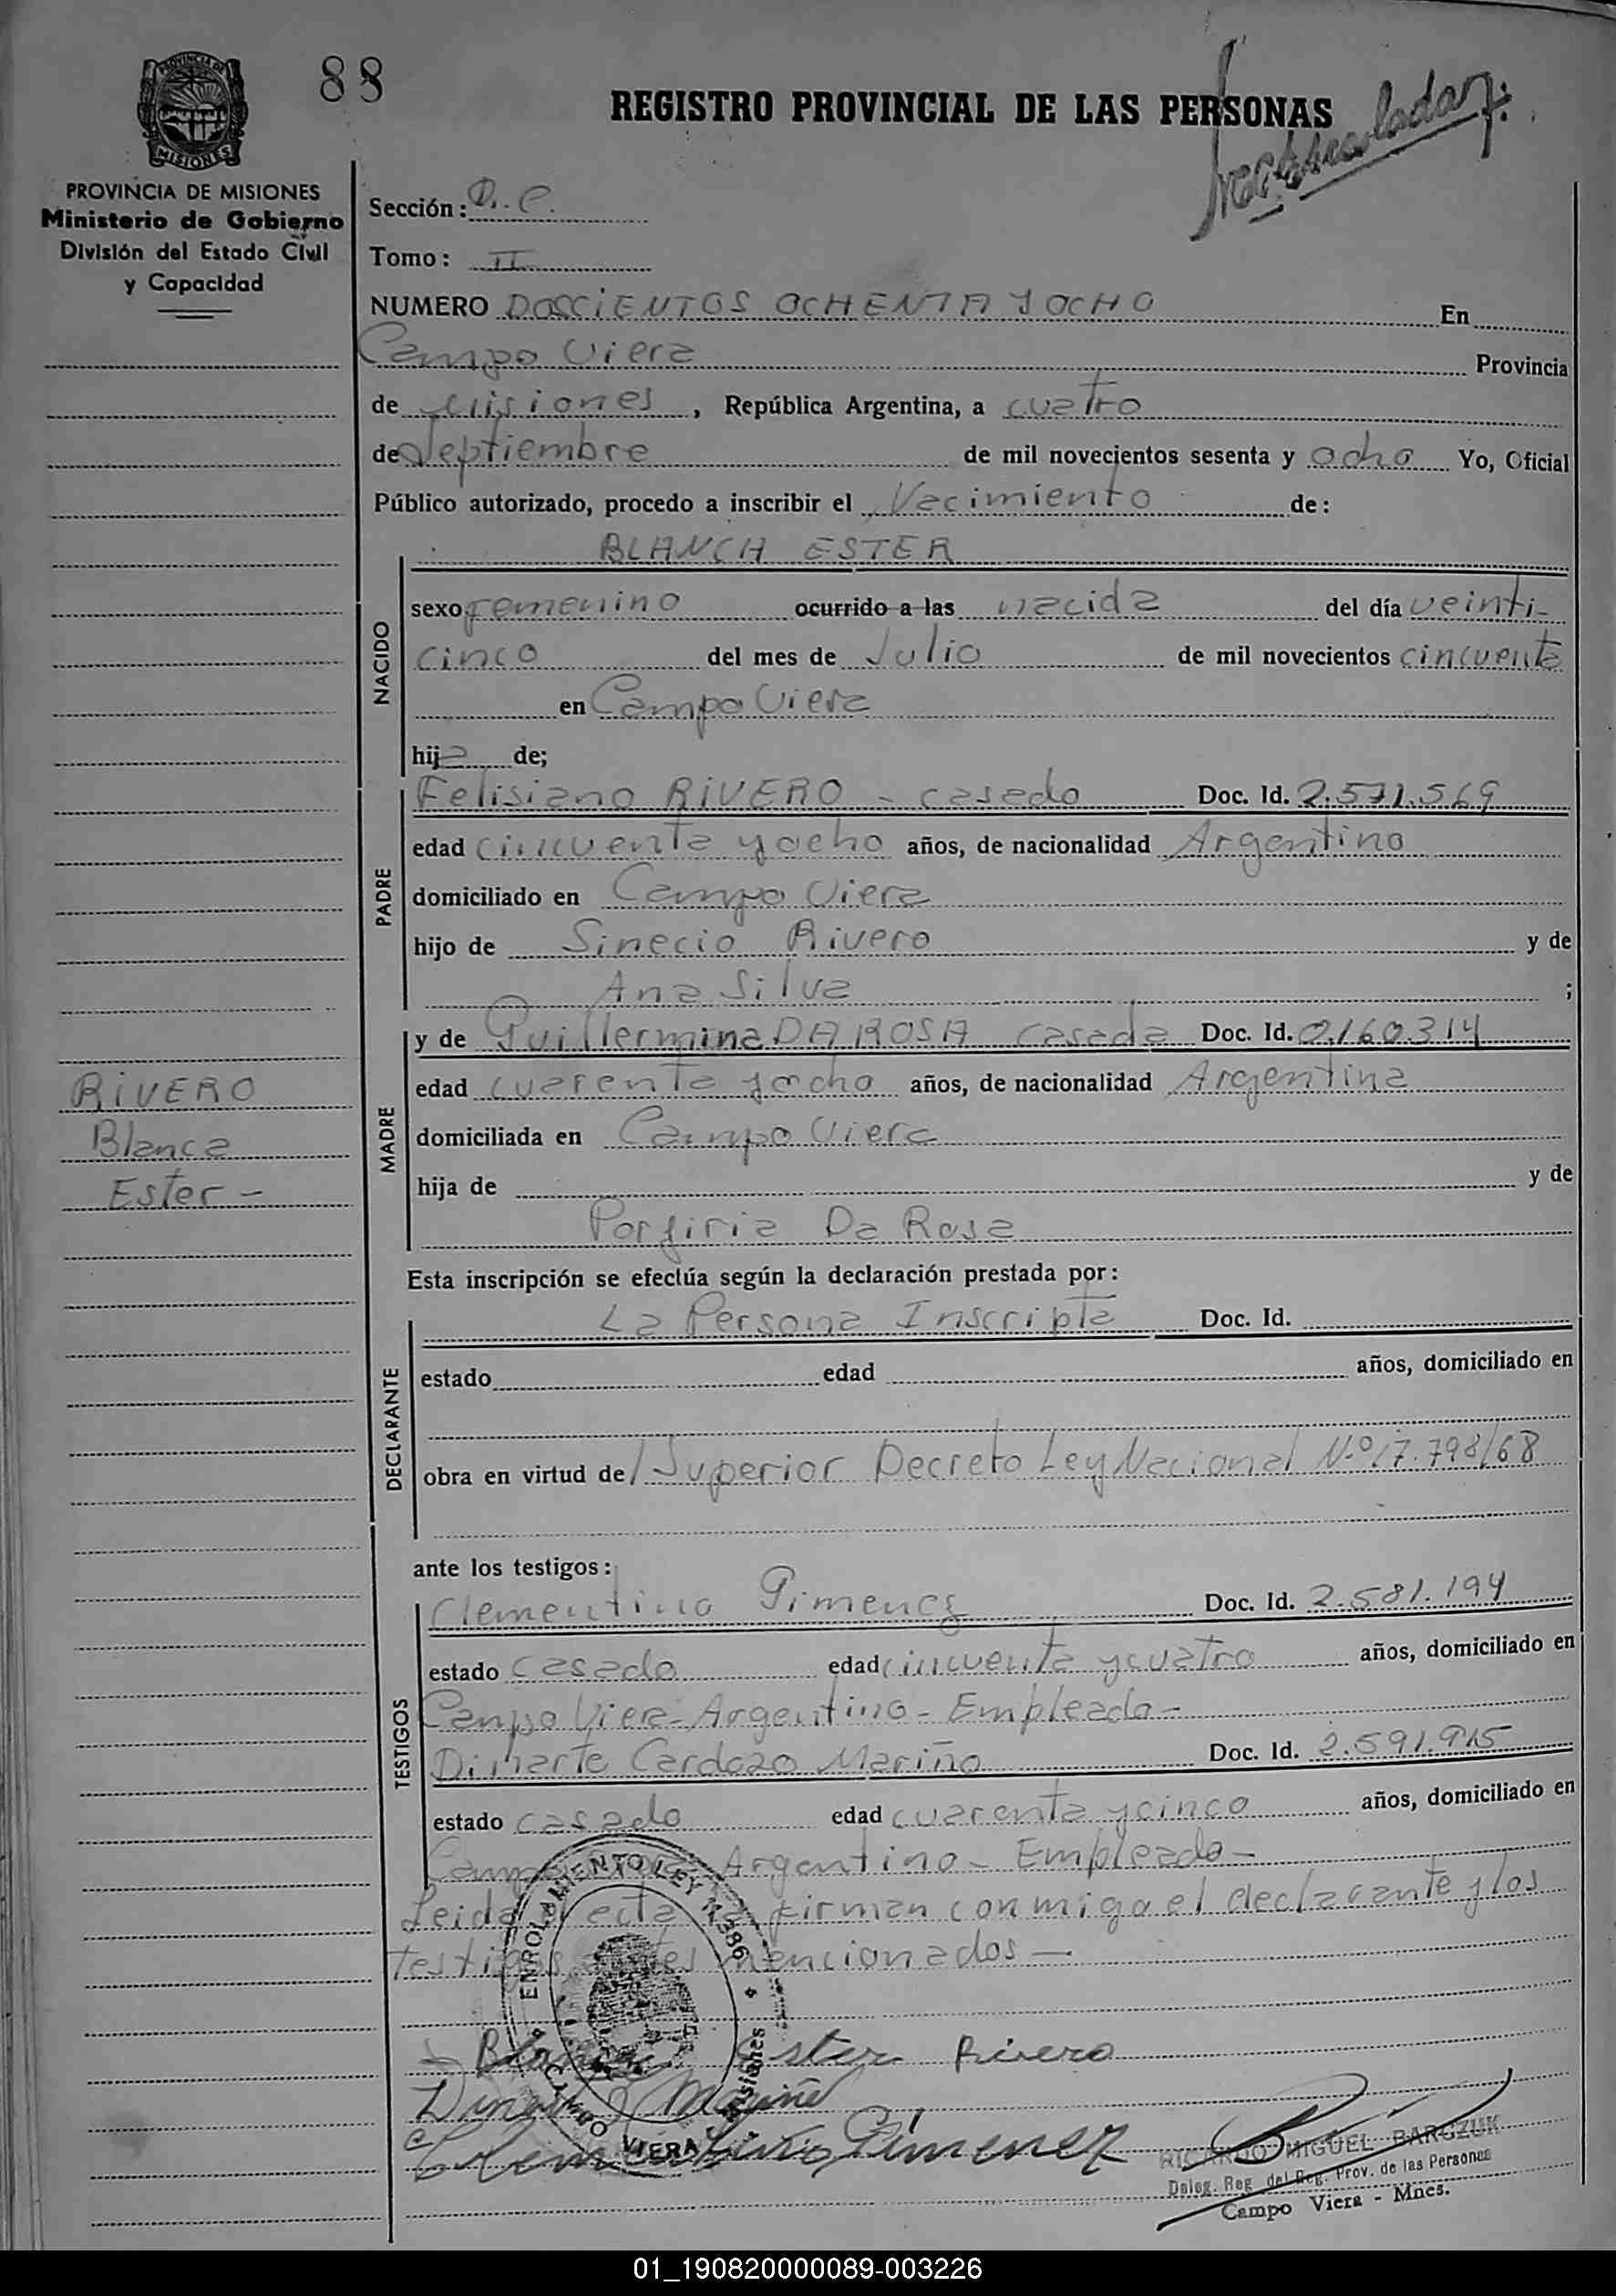 88
REGISTRO PROVINCIAL DE LAS PERSONAS
PROVINCIA DE MISIONES
Ministerio de Gobierno
División del Estado Civil
y Capacidad
Sección: D. C.
Tomo: II
NUMERO DOSCIENTOS OCHENTA Y OCHO En
Campo Viera Provincia
de Misiones, República Argentina, a cuatro
de Septiembre de mil novecientos sesenta y ocho Yo, Oficial
Público autorizado, procedo a inscribir el Nacimiento de:
BLANCA ESTER
NACIDO
sexo femenino ocurrido a las nacida del día veinti-
cinco del mes de Julio de mil novecientos cincuenta
en Campo Viera
hija de;
PADRE
Felisiano RIVERO - casado Doc. Id. 2.571.569
edad cincuenta y ocho años, de nacionalidad Argentino
domiciliado en Campo Viera
hijo de Sinecio Rivero y de
Ana Silva ;
MADRE
y de Guillermina DA ROSA casada Doc. Id. 0.160.314
edad cuarenta y ocho años, de nacionalidad Argentina
domiciliada en Campo Viera
hija de y de
Porfiria Da Rosa
RIVERO
Blanca
Ester -
Esta inscripción se efectúa según la declaración prestada por:
DECLARANTE
La Persona Inscripta Doc. Id.
estado edad años, domiciliado en
obra en virtud de/ Superior Decreto Ley Nacional N.º 17.798/68
ante los testigos:
TESTIGOS
Clementino Gimenez Doc. Id. 2.581.194
estado casado edad cincuenta y cuatro años, domiciliado en
Campo Viera - Argentino - Empleado -
Cardozo Mariño Doc. Id. 2.591.915
estado casado edad cuarenta y cinco años, domiciliado en
Argentino - Empleado -
Leida firman conmigo el declarante y los
testigos mencionados —
ENROLAMIENTO LEY 11386
CAMPO VIERA Misiones
Blanca Ester Rivero
Mariño
Clementino Gimenez
RICARDO MIGUEL BARCZUK
Deleg. Reg. del Reg. Prov. de las Personas
Campo Viera - Mnes.
01_190820000089-003226